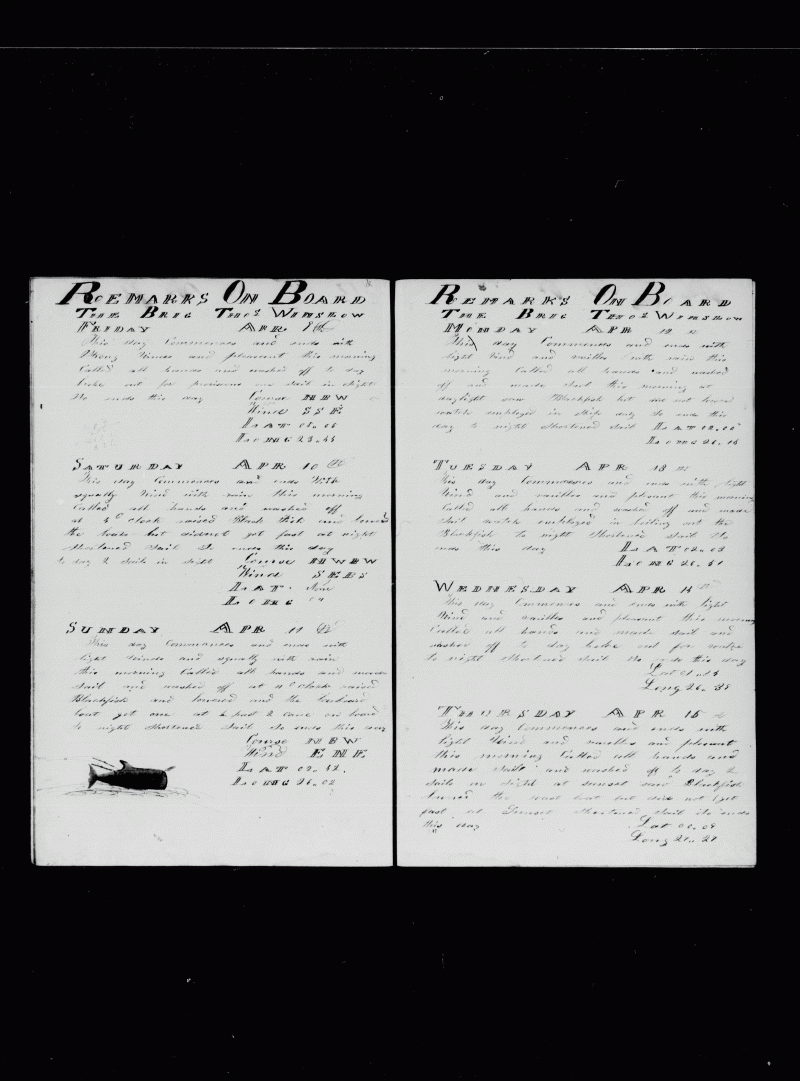 REMARKS ON BOARD
THE BRIG THOS WINSLOW
FRIDAY APR 9th
This day Commences and ends with
Strong Winds and pleasent this morning
Called all hands and washed off to day
broke out for provisions one sail in sight
So ends this day Course NBW
Wind SSE
LAT
LONG
SATURDAY APR 10 th
This day Commences and ends With
squally Wind with rain this morning
Called all hands and washed off
at 4 O Clock raised Black Fish and lowerd
the boats but did not get fast at night
shortened sail So ends this day
to day 2 sails in sight Course NWBW
Wind SEBS
LAT
LONG
SUNDAY APR 11 th
This day Commences and ends with
light Winds and squally with rain
this morning Called all hands and made
sail and washed off at O Clock raised
Blackfish and lowered and the Larboard
boat got one at past 2 came on board
to night shortened sail So ends this day
Course NBW
Wind ENE
LAT 02.42.
LONG 26.02
REMARKS ON BOARD
THE BRIG THOS WINSLOW
MONDAY APR 12 th
This day Commences and ends with
light Wind and rain this
morning Called all hands and washed
off and made sail this morning at
daylight saw Blackfish but did not lower
watch employed in ships duty So ends this
day to night shortened sail LAT 02.05
LONG 26.16
TUESDAY APR 13 th
This day Commences and ends with light
Wind and pleasent this morning
Called all hands and washed off and made
sail watch employed in boiling out the
Blackfish to night Shortened sail So
ends this day LAT 02.03
LONG
WEDNESDAY APR 14 th
This day Commences and ends with light
Wind and pleasent this morning
Called all hands and made sail and
washed off to day broke out for water
to night shortened sail So ends this day
Lat
Long 26.38
THURSDAY APR 15 th
This day Commences and ends with
light Wind and pleasent
this morning Called all hands and
made sail and washed off to day 2
sails in sight at sunset saw Blackfish
lowered the boat but did not get
fast at Sunset shortened sail So ends
this day Lat 00.09
Long 27.27